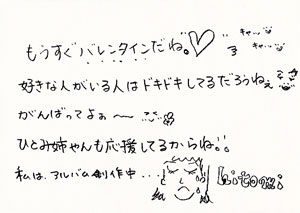 もうすぐバレンタインだね。♡ キャッ キャッ
好きな人がいる人はドキドキしてるだろうねぇ
がんばってよぉ〜
ひとみ姉ちゃんも応援してるからね!!
私は、アルバム創作中・・・ hitomi